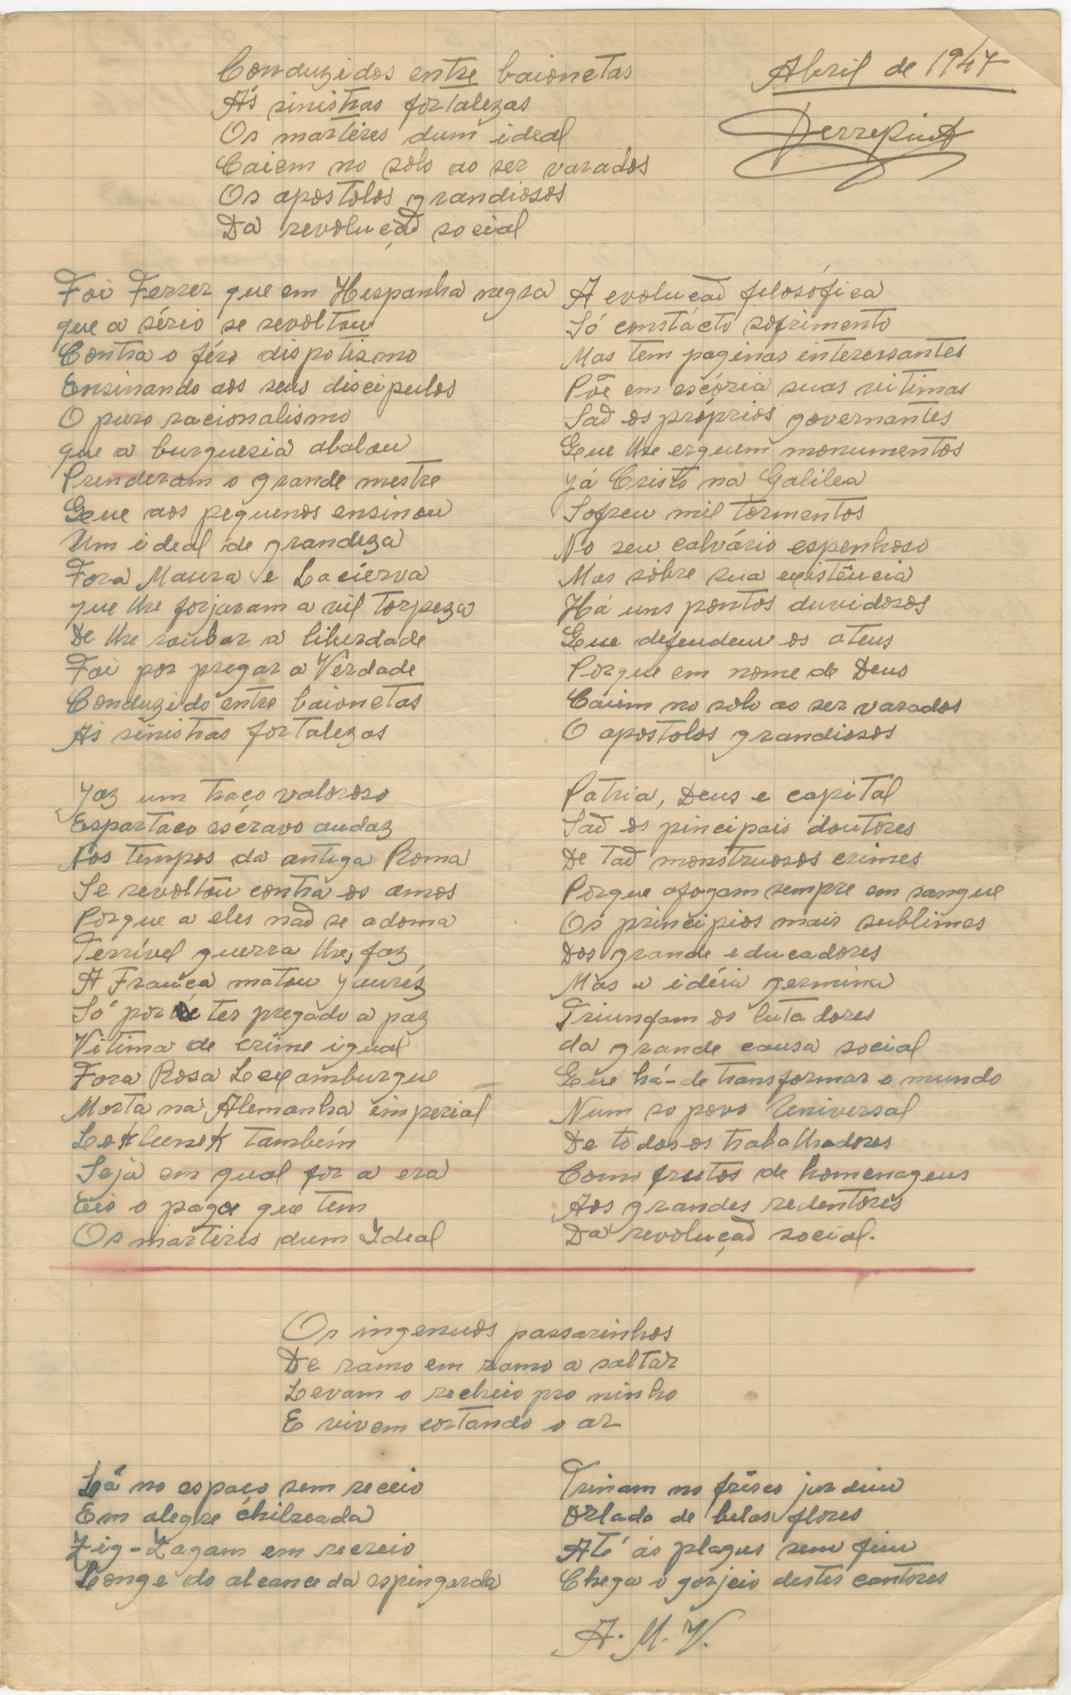 Conduzidos entre baionetas
Ás sinistras fortalezas
Os martéres dum ideal
Caiem no solo ao ser varados
Os apostolos grandiosos
Da revolução social
Abril de 1947
Foi Ferrer que em Hespanha negra
que a sério se revoltou
Contra o féro dispotismo
Ensinando aos seus discipulos
O puro racionalismo
que a burguesia abalou
Prenderam o grande mestre
Que aos pequenos ensinou
Um ideal de grandeza
Fora Maura e Lacierva
que lhe forjaram a vil torpeza
De lhe roubar a liberdade
Foi por pregar a Verdade
Conduzido entre baionetas
Ás sinistras fortalezas
Jaz um traço valoroso
Espartaco escravo audaz
Nos tempos da antiga Roma
Se revoltou contra os amos
Porque a eles não se adoma
Terrível guerra lhe faz
A França matou Jaurés
Só por ter pregado a paz
Vitima de crime igual
Fora Rosa Lexamburgue
Morta na Alemanha imperial
Lekbunek também
Seja em qual for a era
Eis o paga que tem
Os martires dum Ideal
A evolução filosófica
Só constácto sofrimento
Mas tem paginas interessantes
Põe em escória suas vitimas
São os próprios governantes
Que lhe erguem monumentos
Já Cristo na Galilea
Sofreu mil tormentos
No seu calvário espenhoso
Mas sôbre sua existência
Há uns pontos duvidosos
Que defendem os ateus
Porque em nome de Deus
Caiem no solo ao ser varados
O apostolos grandiosos
Patria, Deus e capital
São os pincipais doutores
De tão monstruosos crimes
Porque afogam sempre em sangue
Os principios mais sublimes
Dos grande educadores
Mas a idéia germina
Triunfam os lutadores
da grande causa social
Que há-de transformar o mundo
Num so povo Universal
De todos os trabalhadores
Como frutos de homenagens
Aos grandes redentores
Da revolução social.
Os ingenuos passarinhos
De ramo em ramo a saltar
Levam o recheio pro ninho
E vivem cortando o ar
Lá no espaço sem receio
Em alegre chilreada
Zig-Zagam em recreio
Longe do alcance da espingarda
Trinam no frêsco jardim
Orlado de belas flores
Até ás plagas sem fim
Chega o gorjeio destes cantores
A. M. V.